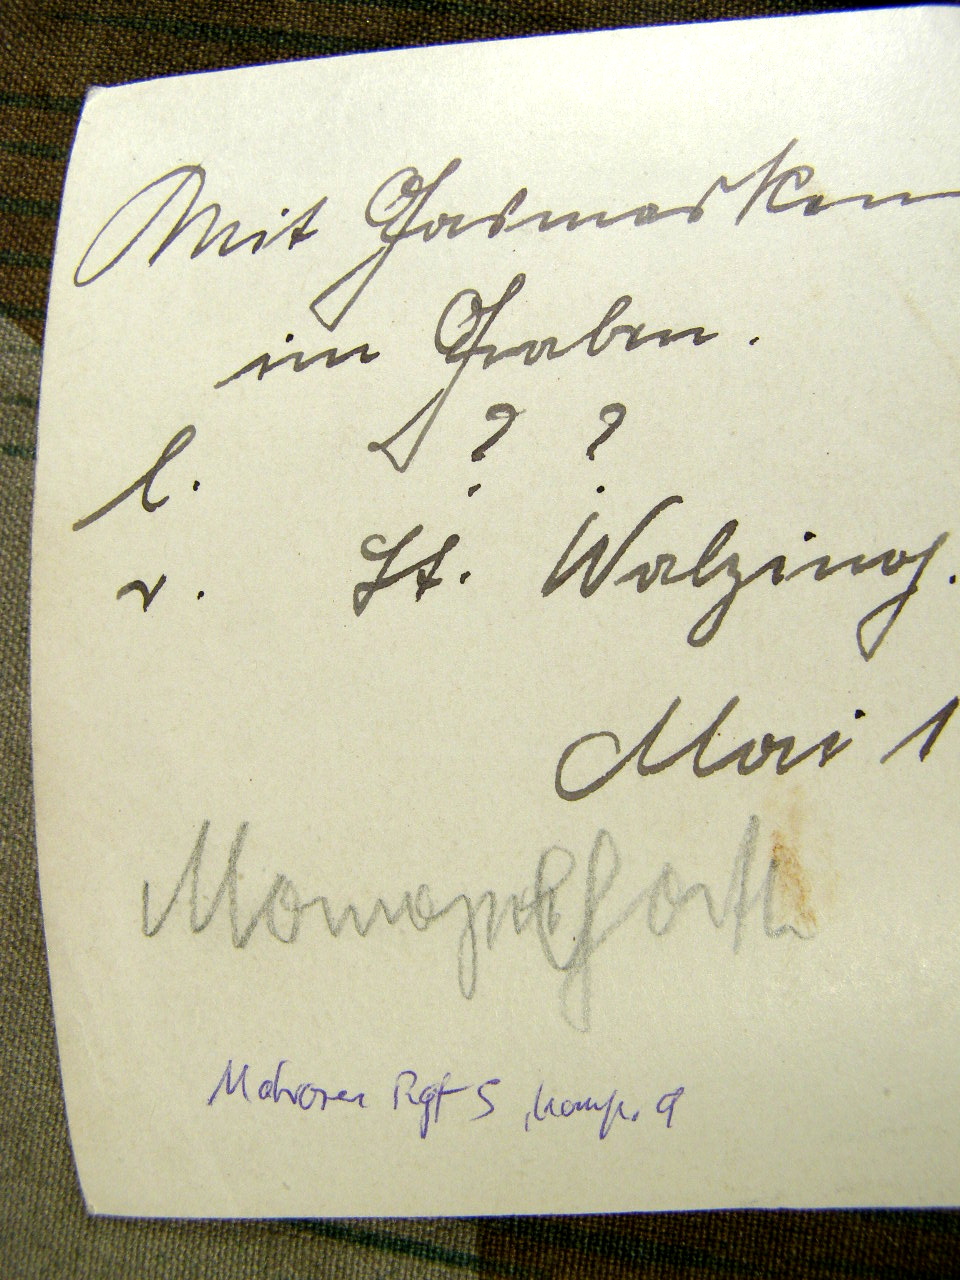 Mit Gasmasken
im Graben.
l. ? ?
r. Lt. Walzing.
Mai 1
Matrosen Rgt 5, Komp. 9